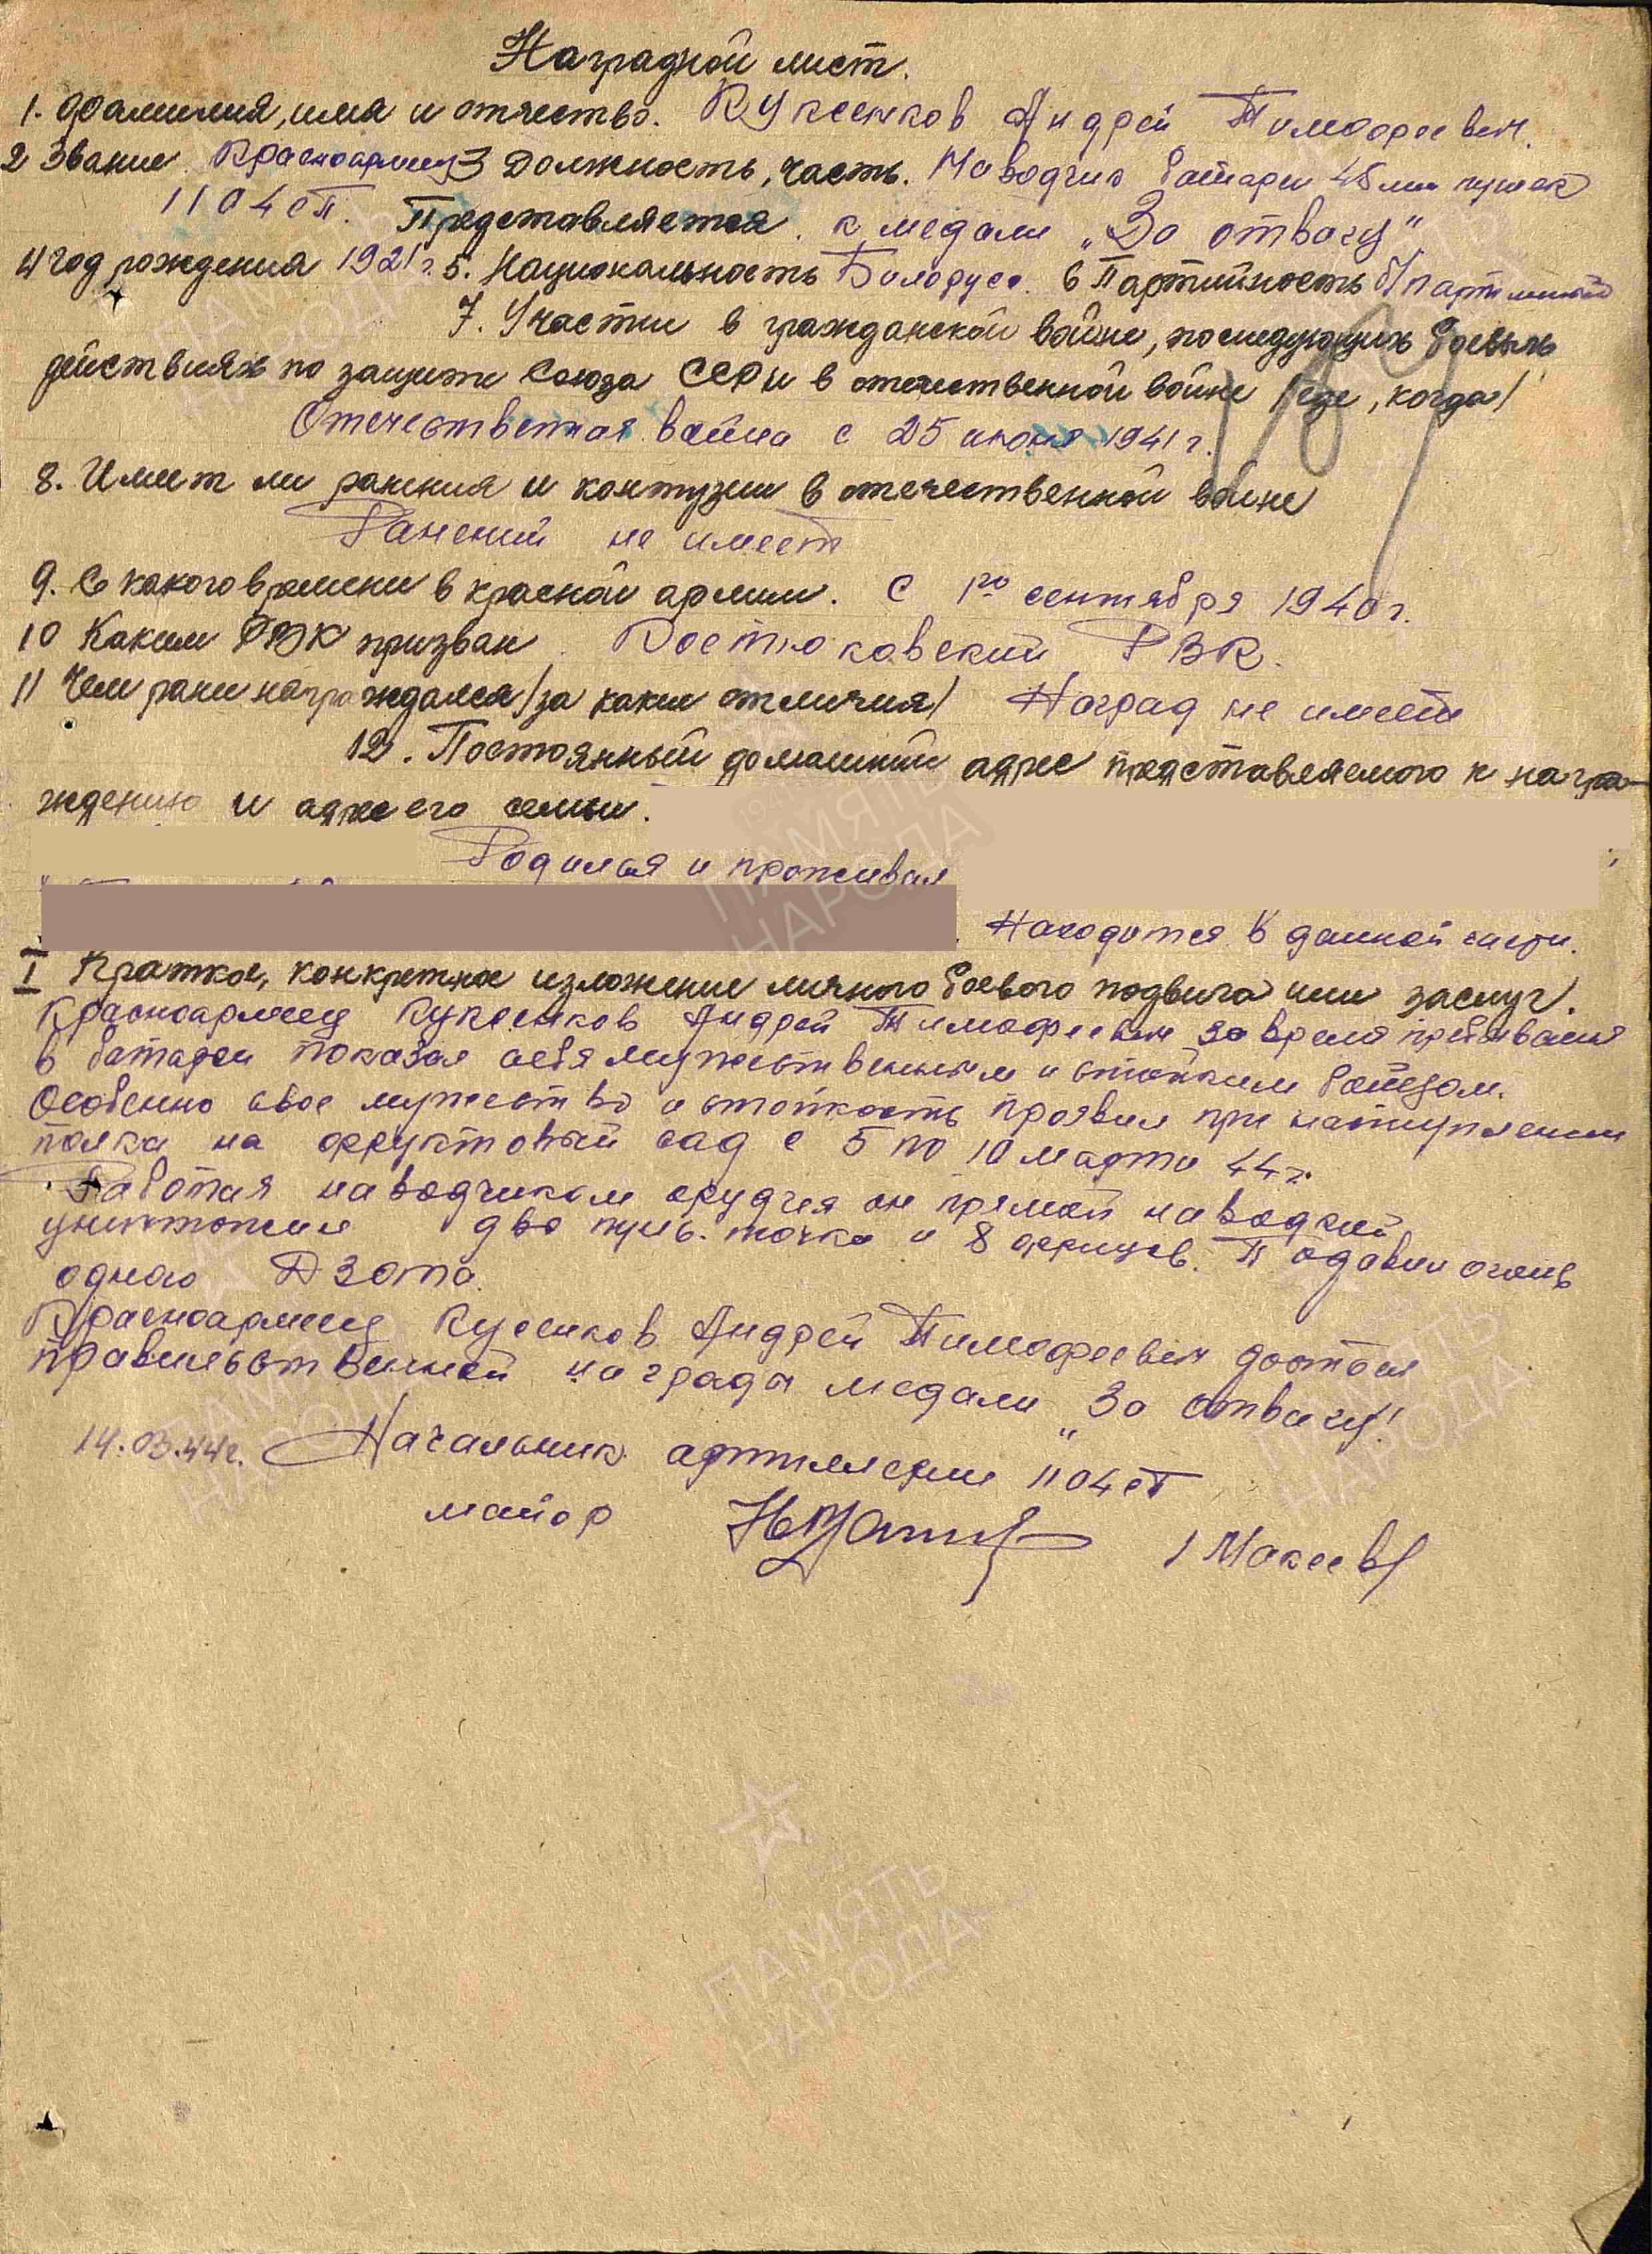 Наградной лист.
1. Фамилия, имя и отчество. Куксенков Андрей Тимофеевич.
2 Звание Красноармеец 3 Должность, часть. Наводчик батареи 45 мм пушек
1104 сп. Представляется к медали „За отвагу"
4 год рождения 1921 г. 5. Национальность Белорусс. 6 Партийность б/партийный
7. Участие в гражданской войне, последующих боевых
действиях по защите Союза ССР и в отечественной войне /где, когда/
Отечественная война с 25 июня 1941 г.
8. Имеет ли ранения и контузии в отечественной войне
Ранений не имеет
9. С какого времени в красной армии. С 1го сентября 1940 г.
10 Каким РВК призван. Костюковский РВК.
11 Чем ранее награждался /за какие отличия/ Наград не имеет
12. Постоянный домашний адрес представляемого к награ-
ждению и адрес его семьи.
Родился и проживал
Находится в данной части.
I Краткое, конкретное изложение личного боевого подвига или заслуг.
Красноармеец Куксенков Андрей Тимофеевич за время пребывания
в батареи показал себя мужественным и стойким бойцом.
Особенно свое мужество и стойкость проявил при наступлении
полка на фруктовый сад с 5 по 10 марта 44 г.
Работая наводчиком орудия он прямой наводкой
уничтожил два пул. точки и 8 фрицев. Подавил огонь
одного ДЗОТа.
Красноармеец Куксенков Андрей Тимофеевич достоин
правительственной награды медали „За отвагу!
14.03.44г. Начальник артиллерии 1104 сп
майор /Макеев/
ПАМЯТЬ
НАРОДА